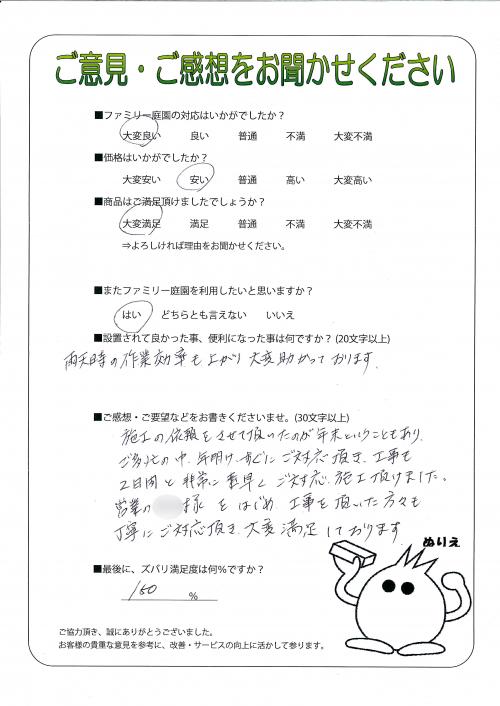 ご意見・ご感想をお聞かせください
■ファミリー庭園の対応はいかがでしたか?
大変良い 良い 普通 不満 大変不満
■価格はいかがでしたか?
大変安い 安い 普通 高い 大変高い
■商品はご満足頂けましたでしょうか?
大変満足 満足 普通 不満 大変不満
⇒よろしければ理由をお聞かせください。
■またファミリー庭園を利用したいと思いますか?
はい どちらとも言えない いいえ
■設置されて良かった事、便利になった事は何ですか? (20文字以上)
雨天時の作業効率も上がり大変助かっております.
■ご感想・ご要望などをお書きくださいませ。(30文字以上)
施工の依頼をさせて頂いたのが年末ということもあり、
ご多忙の中、年明けすぐにご対応頂き、工事も
2日間と非常に素早くご対応、施工頂けました。
営業の 様をはじめ、工事を頂いた方々も
丁寧にご対応頂き、大変満足しております。
ぬりえ
■最後に、ズバリ満足度は何%ですか?
150 %
ご協力頂き、誠にありがとうございました。
お客様の貴重な意見を参考に、改善・サービスの向上に活かして参ります。